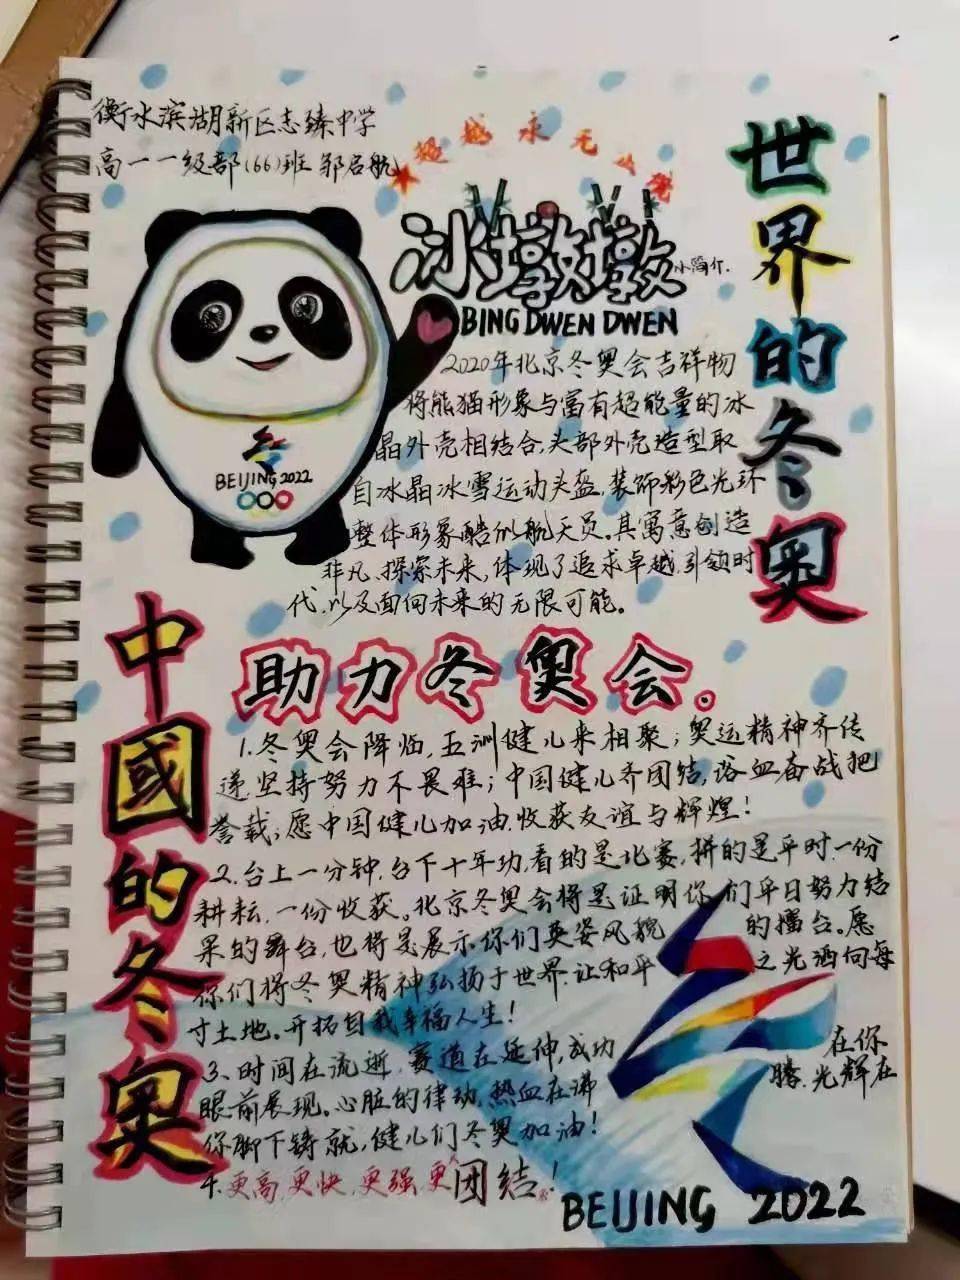 衡水滨湖新区志臻中学
高一一级部(66)班 邹启航
超越永无止境
冰墩墩小简介.
BING DWEN DWEN
世界的冬奥
BEIJING 2022
2020年北京冬奥会吉祥物
将熊猫形象与富有超能量的冰
晶外壳相结合,头部外壳造型取
自冰晶冰雪运动头盔,装饰彩色光环
整体形象酷似航天员。其寓意创造
非凡、探索未来,体现了追求卓越、引领时
代,以及面向未来的无限可能。
中國的冬奥
助力冬奥会。
1.冬奥会降临,五洲健儿来相聚;奥运精神齐传
递,坚持努力不畏难;中国健儿齐团结,浴血奋战把
誉载;愿中国健儿加油,收获友谊与辉煌!
2.台上一分钟,台下十年功,看的是比赛,拼的是平时.一份
耕耘,一份收获。北京冬奥会将是证明你们平日努力结
果的舞台,也将是展示你们英姿风貌的擂台。愿
你们将冬奥精神弘扬于世界,让和平之光洒向每
寸土地。开拓自我幸福人生!
3、时间在流逝,赛道在延伸,成功在你
眼前展现。心脏的律动,热血在沸腾.光辉在
你脚下铸就,健儿们冬奥加油!
4.更高.更快.更强.更团结!
BEIJING 2022